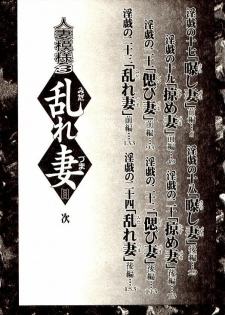 人妻模様3
乱れ妻
みだ
づま
目次
淫戯の十七「曝し妻」前編
淫戯の十八「曝し妻」後編
淫戯の十九「掠め妻」前編
淫戯の二十「掠め妻」後編
淫戯の二十一「偲び妻」前編
淫戯の二十二「偲び妻」後編
淫戯の二十三「乱れ妻」前編…133
淫戯の二十四「乱れ妻」後編…153